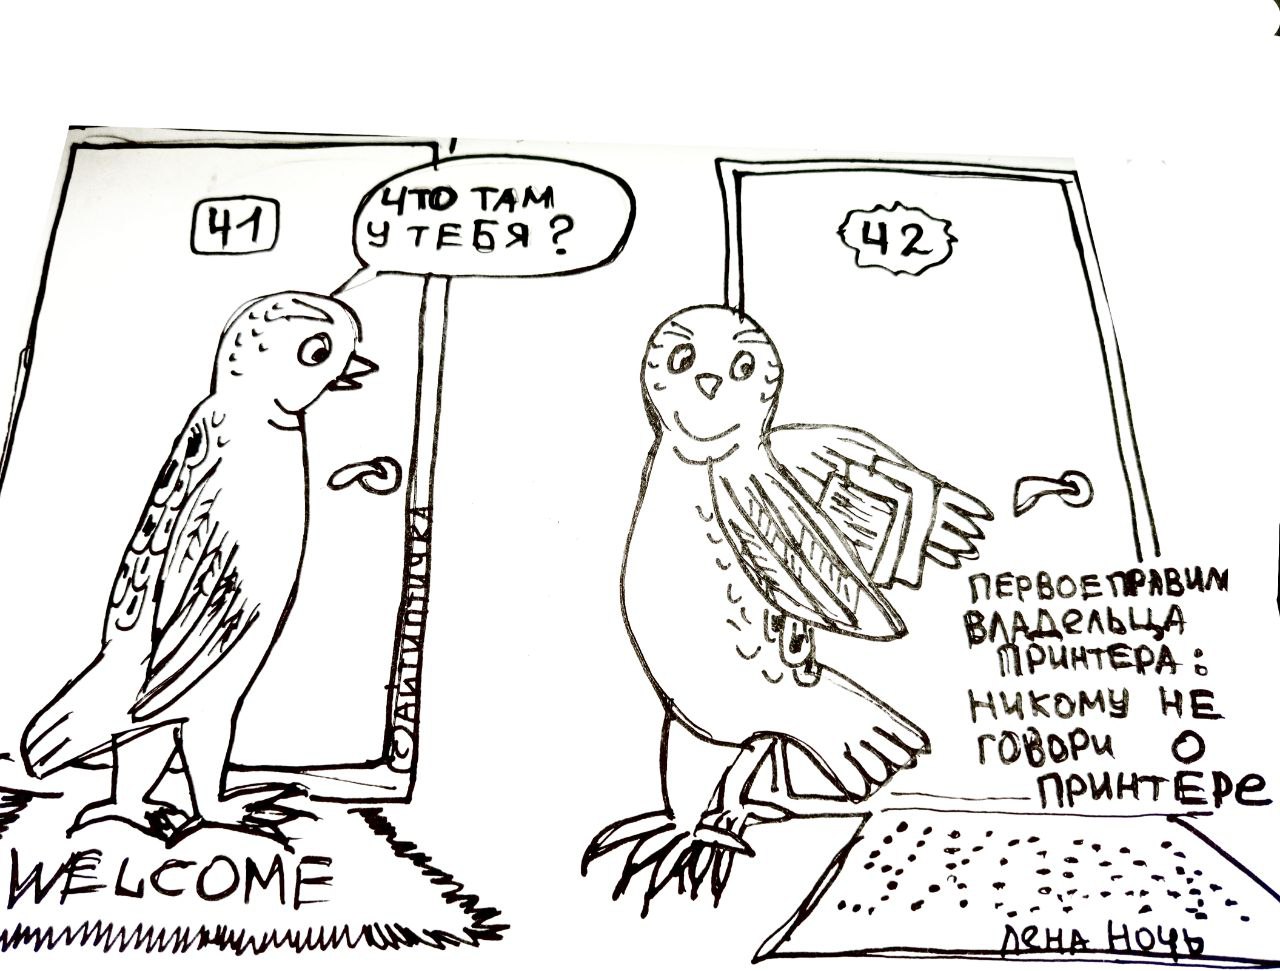 41
ЧТО ТАМ
У ТЕБЯ?
42
©АНТИПТИЧКА
ПЕРВОЕ ПРАВИЛ
ВЛАДЕЛЬЦА
ПРИНТЕРА:
НИКОМУ НЕ
ГОВОРИ О
ПРИНТЕРЕ
WELCOME
ЛЕНА НОЧЬ